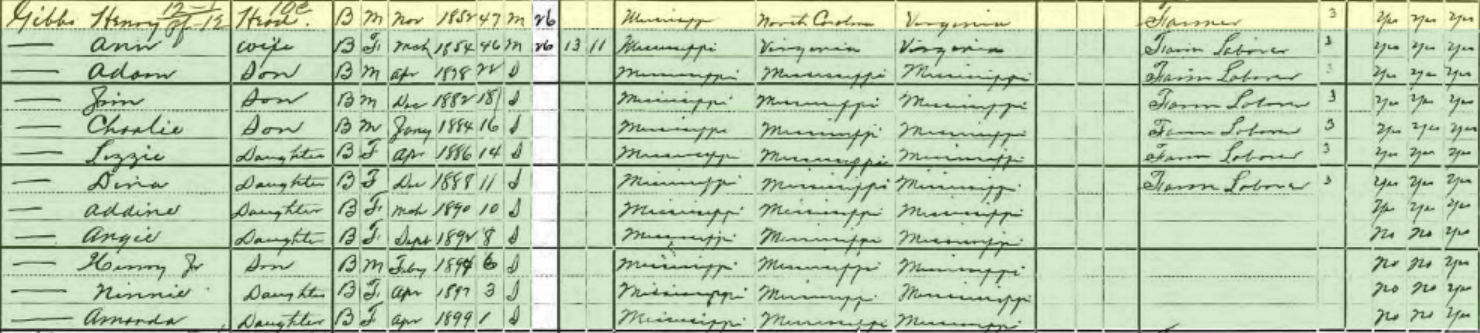 Gibbs Henry 12-1 of 12 Head. B M Nov 1852 47 M 26 Mississippi North Carolina Virginia Farmer 3 Yes Yes Yes
— Ann Wife B F Mch 1854 46 M 26 13 11 Mississippi Virginia Virginia Farm Laborer 3 Yes Yes Yes
— Adam Son B M Apr 1878 22 S Mississippi Mississippi Mississippi Farm Laborer 3 Yes Yes Yes
— Jim Son B M Dec 1882 18 S Mississippi Mississippi Mississippi Farm Laborer 3 Yes Yes Yes
— Charlie Son B M Jany 1884 16 S Mississippi Mississippi Mississippi Farm Laborer 3 Yes Yes Yes
— Lizzie Daughter B F Apr 1886 14 S Mississippi Mississippi Mississippi Farm Laborer 3 Yes Yes Yes
— Dina Daughter B F Dec 1888 11 S Mississippi Mississippi Mississippi Farm Laborer 3 Yes Yes Yes
— Addine Daughter B F Mch 1890 10 S Mississippi Mississippi Mississippi Yes Yes Yes
— Angie Daughter B F Sept 1892 8 S Mississippi Mississippi Mississippi no no Yes
— Henry Jr Son B M Feby 1894 6 S Mississippi Mississippi Mississippi no no Yes
— Ninnie Daughter B F Apr 1897 3 S Mississippi Mississippi Mississippi no no Yes
— Amanda Daughter B F Apr 1899 1 S Mississippi Mississippi Mississippi no no Yes